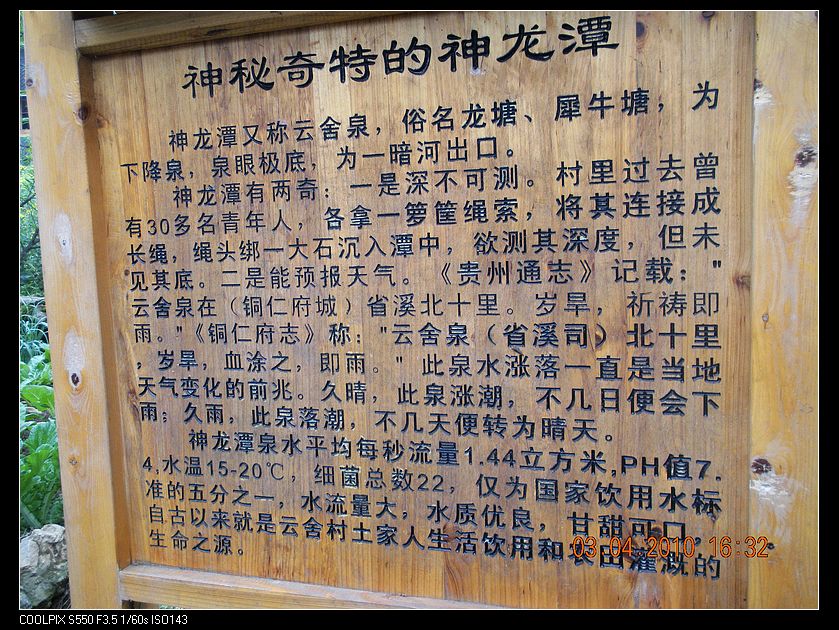 神秘奇特的神龙潭
神龙潭又称云舍泉，俗名龙塘、犀牛塘，为
下降泉，泉眼极底，为一暗河出口。
神龙潭有两奇：一是深不可测。村里过去曾
有30多名青年人，各拿一箩筐绳索，将其连接成
长绳，绳头绑一大石沉入潭中，欲测其深度，但未
见其底。二是能预报天气。《贵州通志》记载："
云舍泉在（铜仁府城）省溪北十里。岁旱，祈祷即
雨。"《铜仁府志》称："云舍泉（省溪司）北十里
，岁旱，血涂之，即雨。"此泉水涨落一直是当地
天气变化的前兆。久晴，此泉涨潮，不几日便会下
雨；久雨，此泉落潮，不几天便转为晴天。
神龙潭泉水平均每秒流量1.44立方米,PH值7.
4,水温15-20℃，细菌总数22，仅为国家饮用水标
准的五分之一，水流量大，水质优良，甘甜可口，
自古以来就是云舍村土家人生活饮用和农田灌溉的
生命之源。
03.04.2010 16:32
COOLPIX S550 F3.5 1/60s ISO143